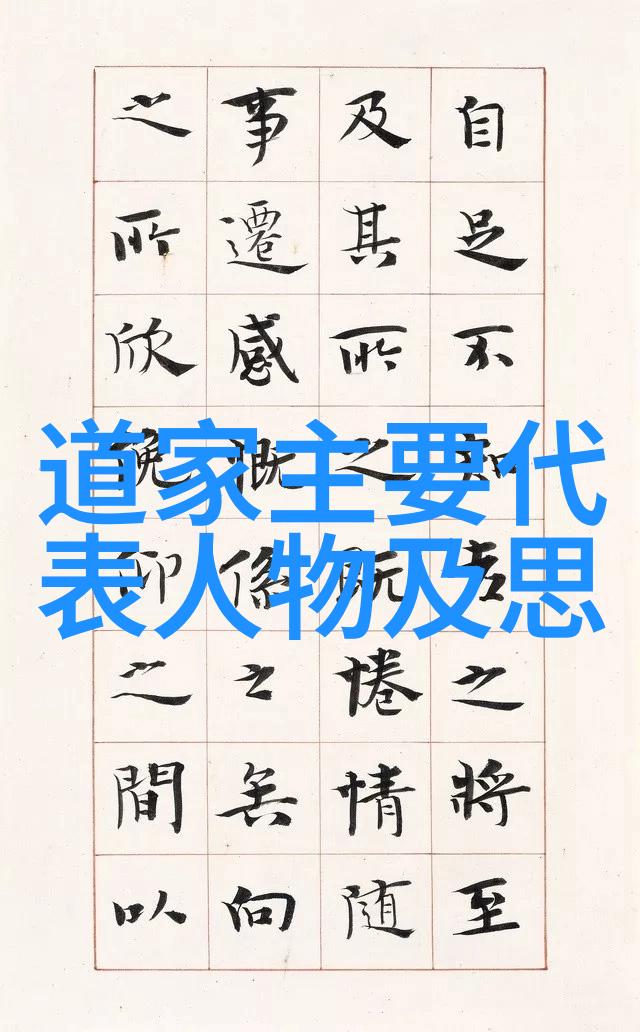 道家主要代
表人物及思
自足不知老之將至
及其所之既惓情随
事遷感慨係之矣向
之所欣俛仰之間以